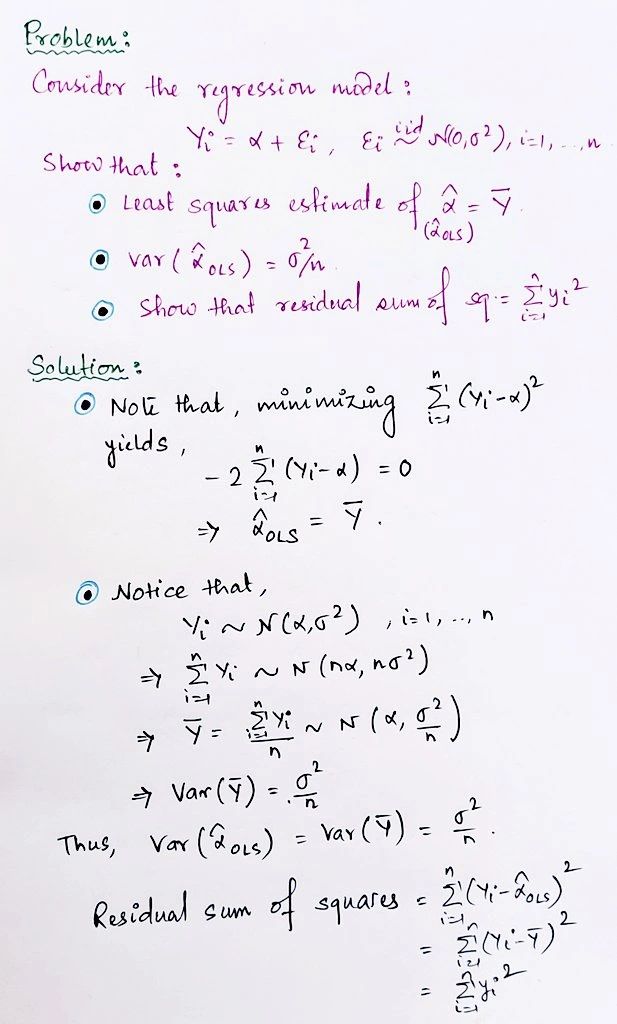 Problem:
Consider the regression model:
Yi = α + εi, εi iid~ N(0,σ²), i=1, ..., n
Show that:
• Least squares estimate of α̂ = Ȳ.
(α̂OLS)
• var(α̂OLS) = σ²/n.
• Show that residual sum of sq = Σⁿᵢ₌₁ yi²
Solution:
• Note that, minimizing Σⁿᵢ₌₁ (Yi-α)²
yields,
-2 Σⁿᵢ₌₁ (Yi-α) = 0
⇒ α̂OLS = Ȳ.
• Notice that,
Yi ~ N(α,σ²), i=1, ..., n
⇒ Σⁿᵢ₌₁ Yi ~ N(nα, nσ²)
⇒ Ȳ = Σⁿᵢ₌₁Yi/n ~ N(α, σ²/n)
⇒ Var(Ȳ) = σ²/n
Thus, Var(α̂OLS) = Var(Ȳ) = σ²/n.
Residual sum of squares = Σⁿᵢ₌₁(Yi-α̂OLS)²
= Σⁿᵢ₌₁(Yi-Ȳ)²
= Σⁿᵢ₌₁yi²